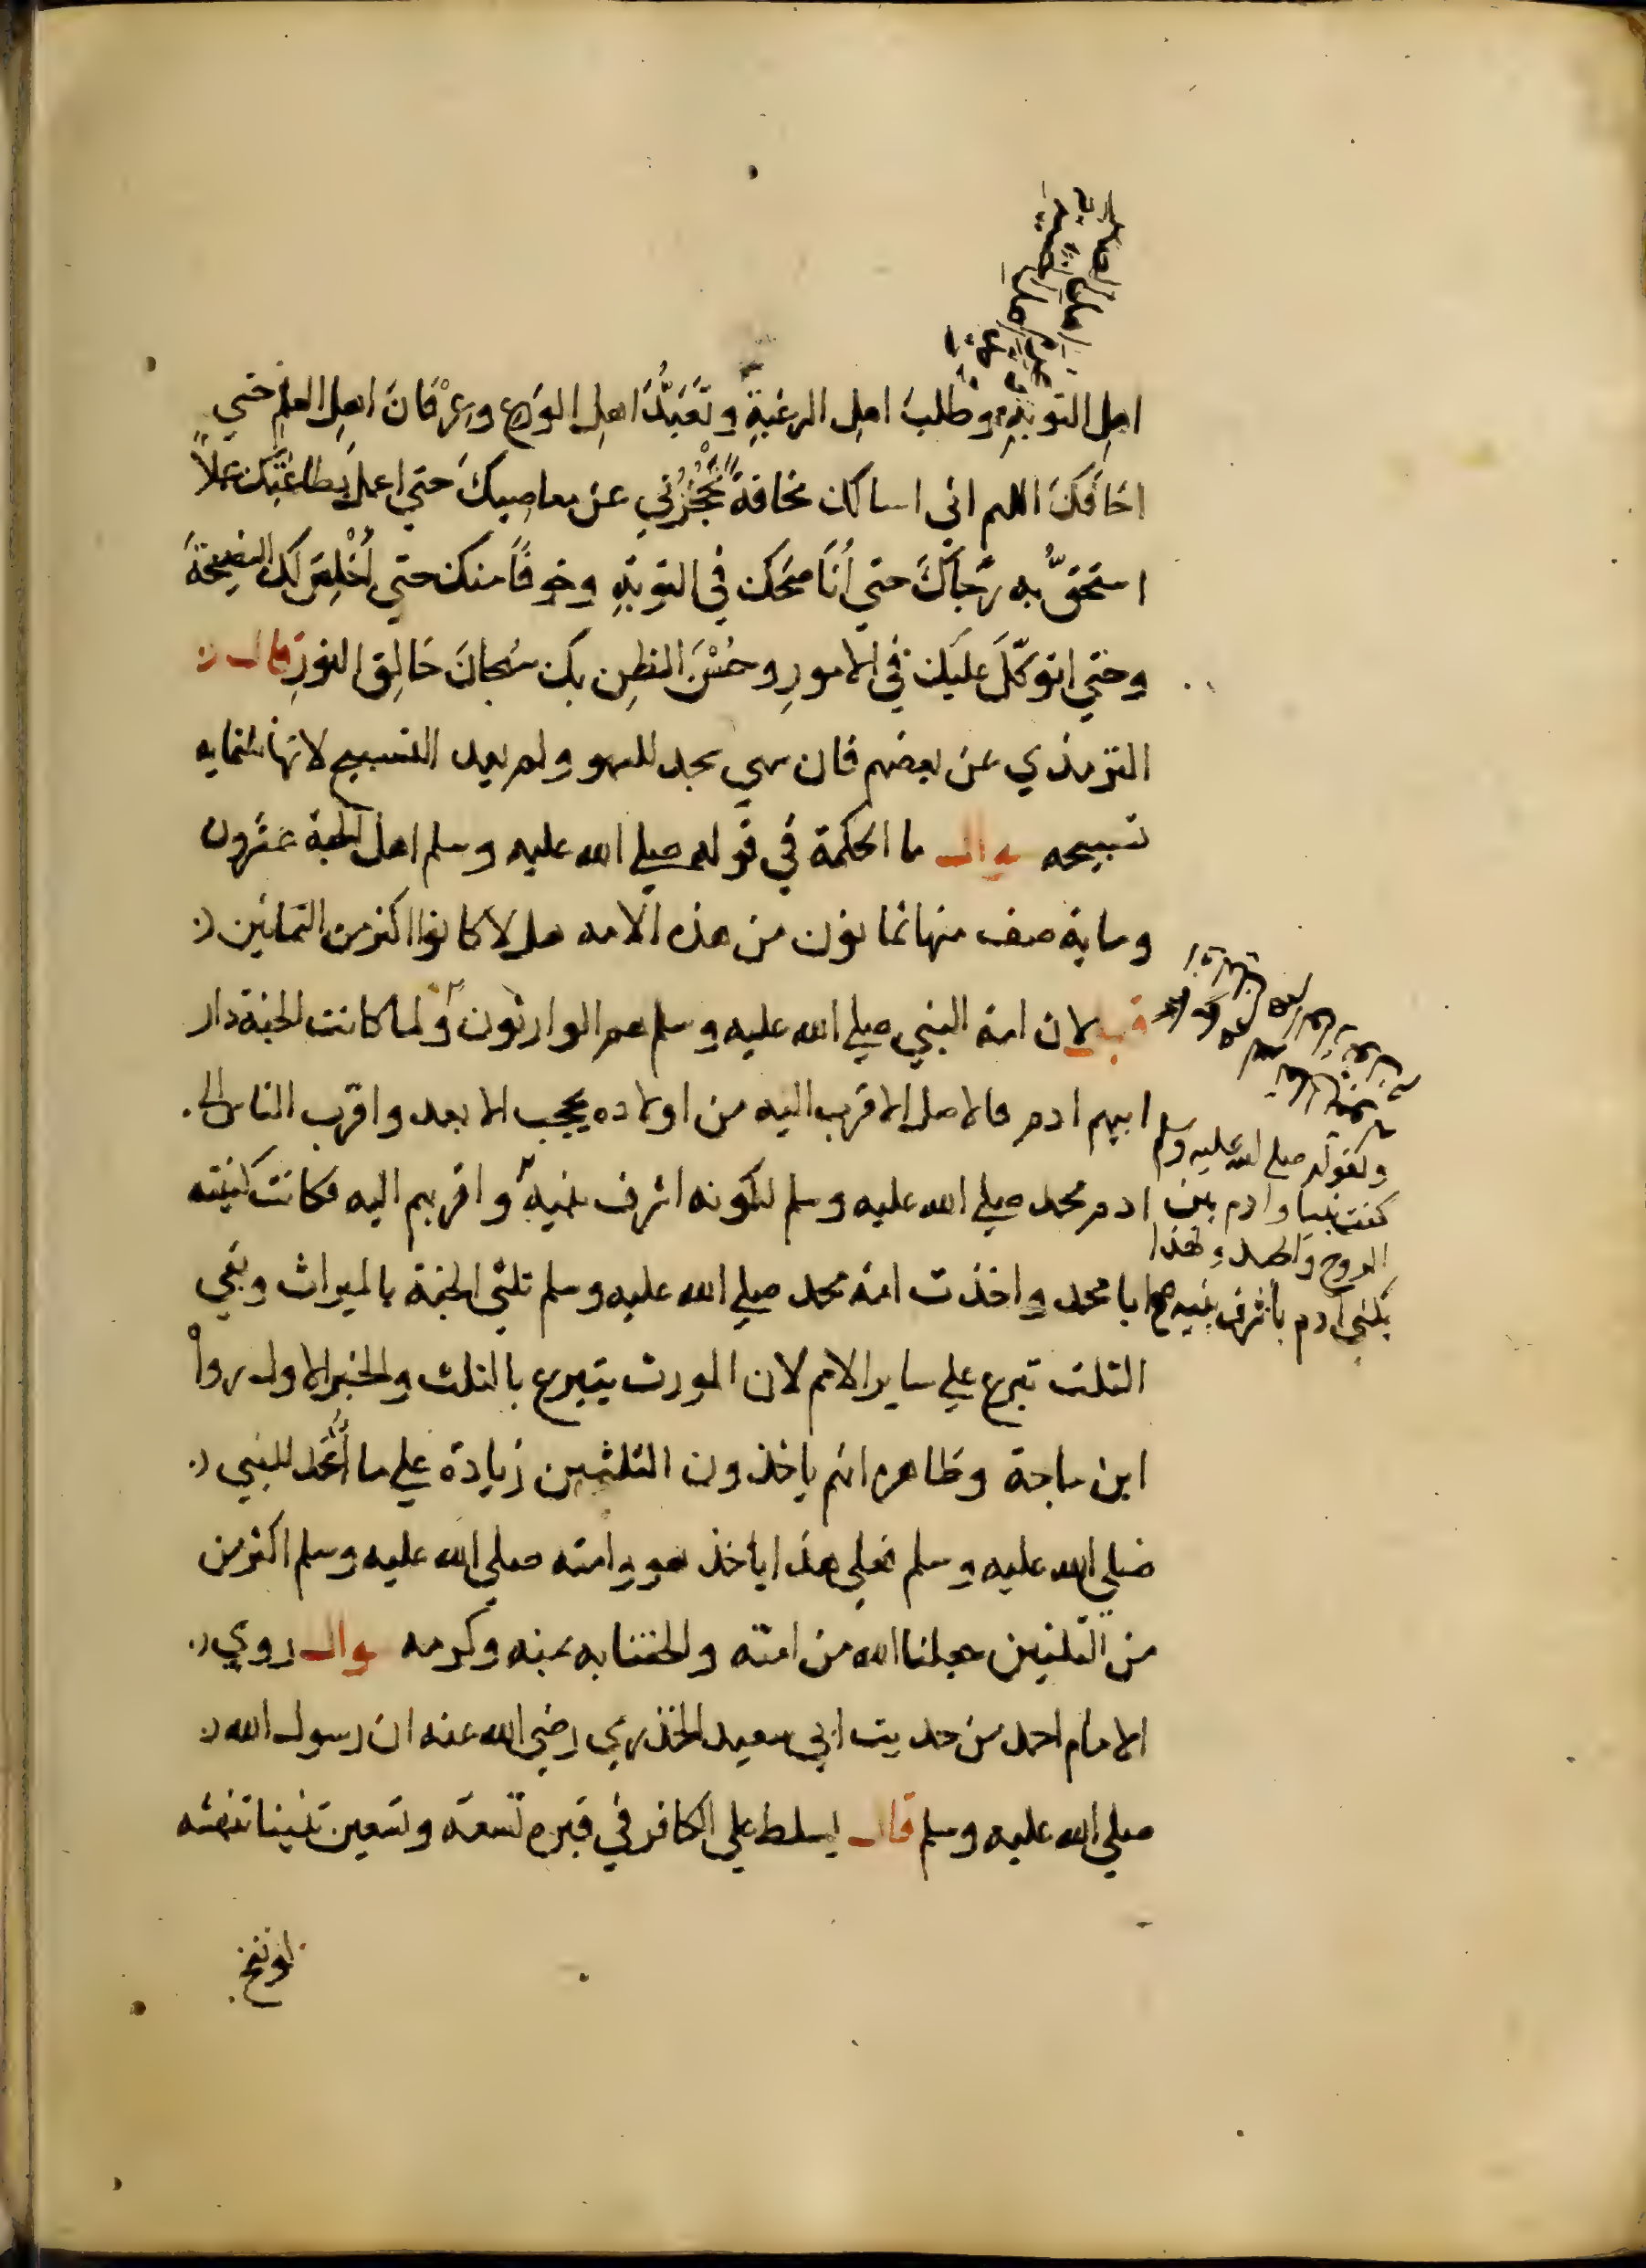 اهلِ التوبةِ وطلبَ اهلِ الرغبةِ وتَعَبُّدَ اهلِ الوَرعِ وعِرْفَانَ اهلِ العلمِ حتي
اخافكَ اللهم اني اسالك مخافةً تَحْجُزُني عن معاصيكَ حتي اعملَ بطاعتِكَ عملاً
استحقُّ به رَجاكَ حتي أُنَاصحَكَ في التوبةِ وخوفًا منك حتي أُخْلِصَ لَكَ النصيحةَ
وحتي اتوكّلَ عليكَ في الامورِ وحُسْنَ الظنِ بك سُبحانَ خالِق النورِ قال
الترمذي عن بعضهم فان سهي سجد للسهو ولم يعد التسبيح لانها ثلثمايه
تسبيحه سوال ما الحكمة في قوله صلي الله عليه وسلم اهل الجنة عشرون
وماية صف منها ثمانون من هذه الامه هل لا كانوا اكثر من الثمانين
لان امة النبي صلي الله عليه وسلم هم الوارثون ولما كانت الجنة دار
ابيهم ادم فالاصل الاقرب اليه من اولاده يحجب الابعد واقرب الناس الي
ادم محمد صلي الله عليه وسلم لكونه اشرف بنيه واقربهم اليه فكانت كنيته
ابا محمد واخذت امة محمد صلي الله عليه وسلم ثلثي الجنة بالميراث وبقي
الثلث تبرع علي ساير الامم لان المورث يتبرع بالثلث والخبر الاول رواه
ابن ماجة وظاهره انهم ياخذون الثلثين زيادة علي ما أُعد للنبي
صلي الله عليه وسلم فعلي هذا ياخذ هو وامته صلي الله عليه وسلم اكثر من
من الثلثين جعلنا الله من امته والحقنا به بمنه وكرمه سوال روي
الامام احمد من حديث ابي سعيد الخذري رضي الله عنه ان رسول الله
صلي الله عليه وسلم قال يسلط علي الكافر في قبره تسعة وتسعين تنينا تنهشه
ولقوله صلي الله عليه وسلم
كنت نبيا وادم بين
الروح والجسد ولهذا
يكني آدم بأشرف بنيه صح
لو نفخ